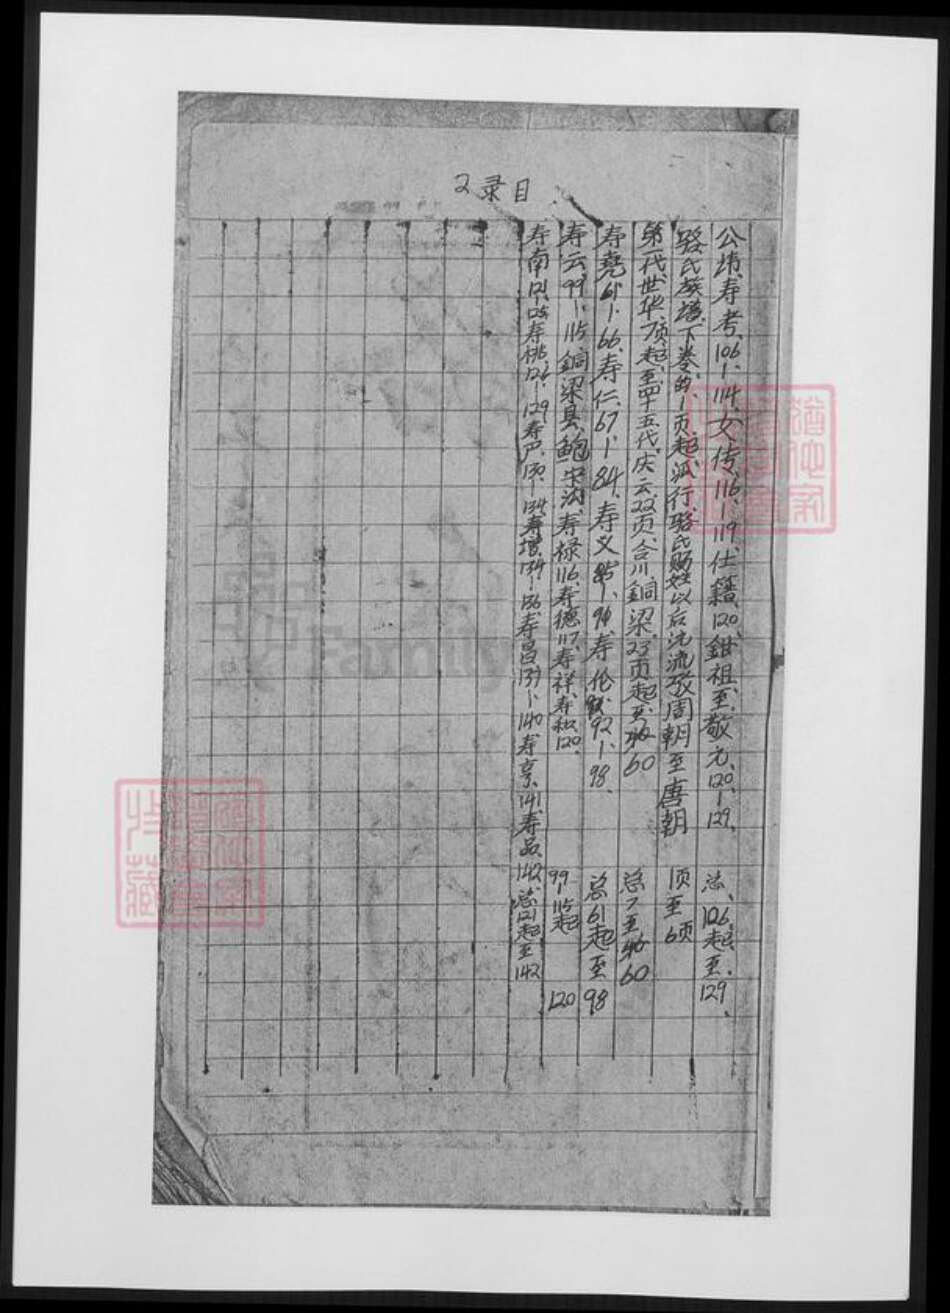 2 录目
公堉、寿考、106—114、女传、116—119、仕籍、120、鉗祖、至、敬元、120—129、 总、106、起、至、129、
骆氏族譜、下卷的、1页、起、派行骆氏赐姓以后沅流效周朝至唐朝 1页至6页
第一代、世华、7页、起、至、四十五代、庆云、22页、合川、銅梁、23页起、至、60 总7至60
寿尧、61—66、寿仁、67—84、寿义、85—91、寿伦、92—98、 总61起至98
寿云、99—115、銅梁县、鮑家沟、寿禄、116、寿德、117、寿祥、寿松、120、 99—115起 120
寿南、121、125、寿桃、126—129、寿户、130、134、寿增、134—136、寿昌、137—140、寿亨、141、寿品、142、总121起至142